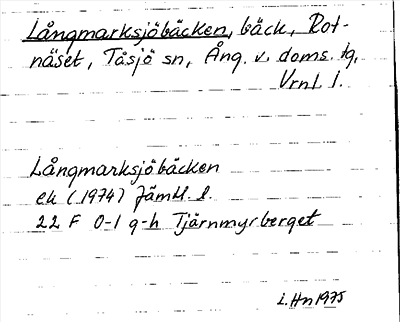 Långmarksjöbäcken, bäck, Rot-
näset, Tåsjö sn, Ång. v. doms. tg,
Vrnl. l.
Långmarksjöbäcken
ek (1974) Jämtl. l.
22 F 0-1 g-h Tjärnmyrberget
L. Hn 1975